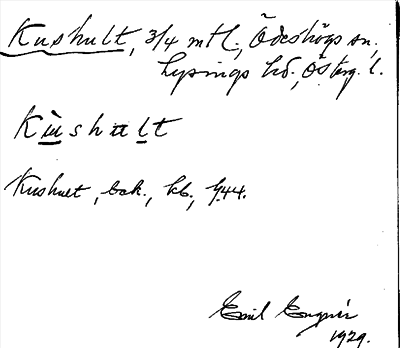 Kushult, 3/4 mtl., Ödeshögs sn,
Lysings hd., Österg. l.
Kùshult
Kushult, bok., kb,
Emil Engnér
1929.